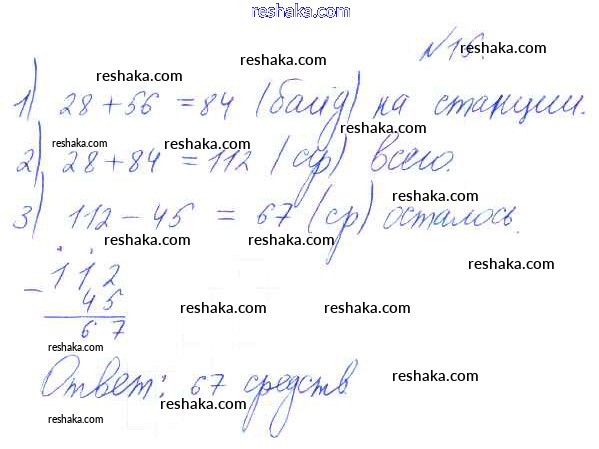 reshaka.com
reshaka.com №16.
reshaka.com reshaka.com
1) 28 + 56 = 84 (байд) на станции.
reshaka.com reshaka.com
2) 28 + 84 = 112 (ср) всего.
reshaka.com reshaka.com
3) 112 - 45 = 67 (ср) осталось.
reshaka.com reshaka.com reshaka.com
- 112
45
reshaka.com reshaka.com
67
reshaka.com
Ответ: 67 средств
reshaka.com reshaka.com
reshaka.com